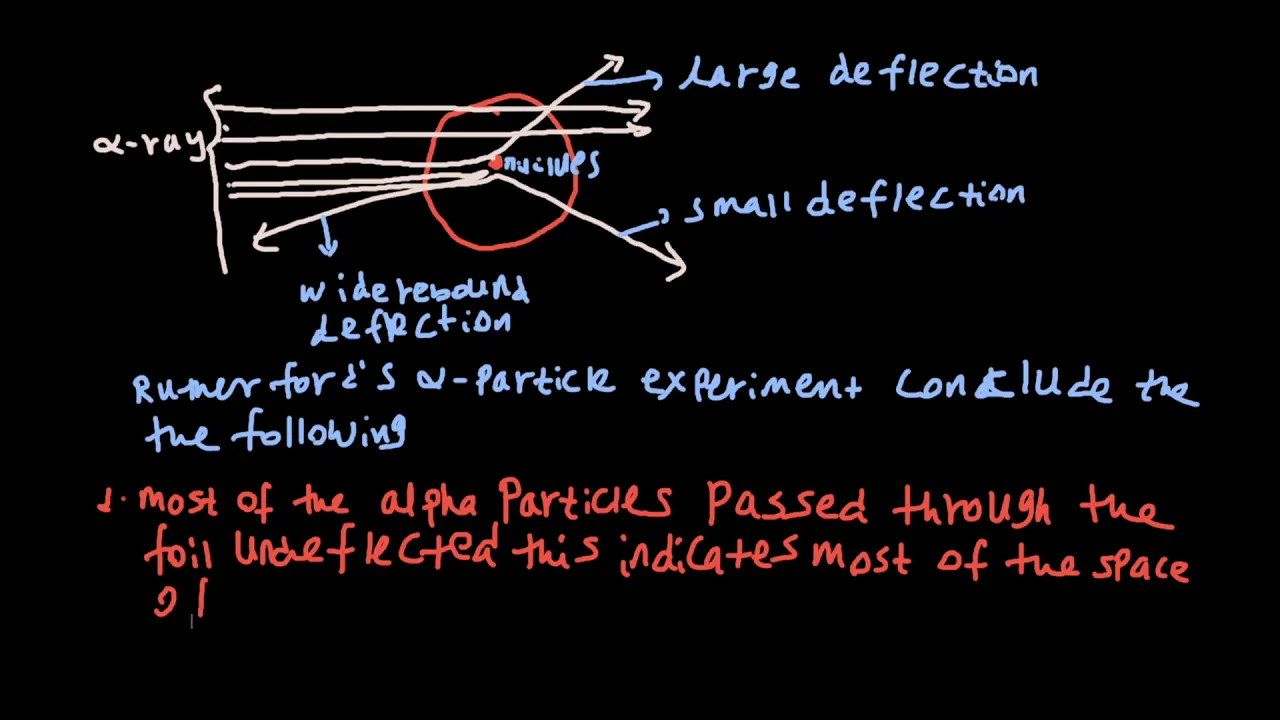 large deflection
α-ray
nuclues
small deflection
wide rebound
deflection
Rutherford's α-particle experiment conclude the
the following
1. most of the alpha Particles Passed through the
foil undeflected this indicates most of the space
of